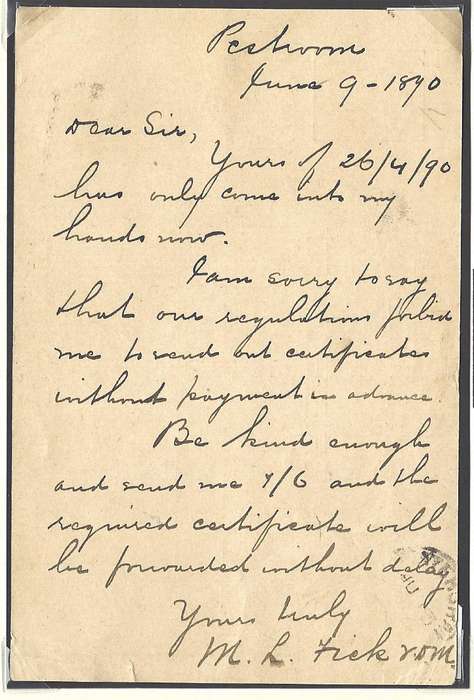 June 9 - 1890
Dear Sir,
Yours of 26/4/90
has only come into my
hands now.
I am sorry to say
that our regulations forbid
me to send out certificates
without payment in advance.
Be kind enough
and send me 7/6 and the
required certificate will
be forwarded without delay
Yours truly
M. L.